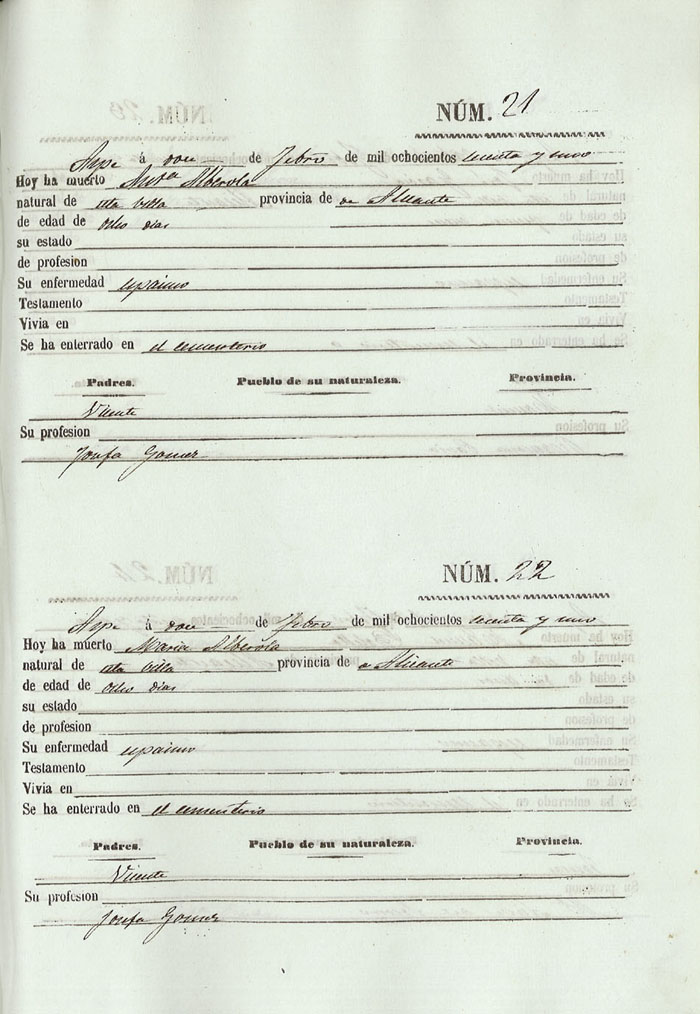 NÚM. 21
Aspe á doce de Febro de mil ochocientos sesenta y uno
Hoy ha muerto Alberola
natural de esta villa provincia de de Alicante
de edad de ocho dias
su estado
de profesion
Su enfermedad espasmo
Testamento
Vivia en
Se ha enterrado en el cementerio
Padres. Pueblo de su naturaleza. Provincia.
Vicente
Su profesion
Josefa Gomez
NÚM. 22
Aspe á doce de Febro de mil ochocientos sesenta y uno
Hoy ha muerto Maria Alberola
natural de esta villa provincia de Alicante
de edad de ocho dias
su estado
de profesion
Su enfermedad espasmo
Testamento
Vivia en
Se ha enterrado en el cementerio
Padres. Pueblo de su naturaleza. Provincia.
Vicente
Su profesion
Josefa Gomez